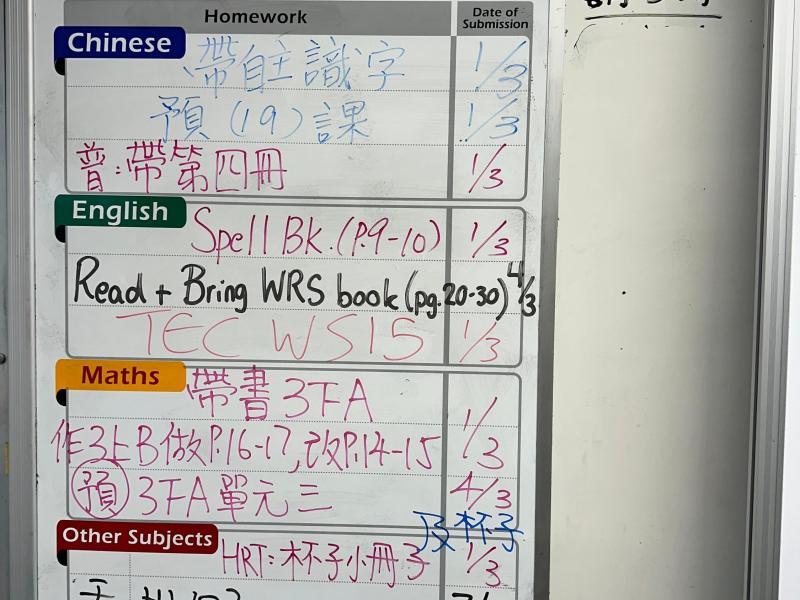 Homework Date of Submission
Chinese
帶自主識字 1/3
預(19)課 1/3
普:帶第四冊 1/3
English
Spell BK.(P.9-10) 1/3
Read + Bring WRS book (pg.20-30) 4/3
TEC WS15 1/3
Maths
帶書3下A 1/3
作3上B做P.16-17,改P.14-15
預 3下A單元三 4/3
Other Subjects
及杯子
HRT:杯子小冊子 1/3